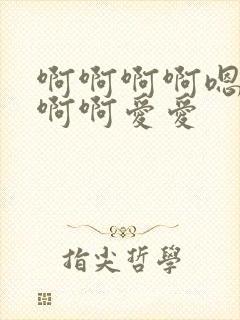 啊啊啊啊嗯
啊啊愛愛
指尖哲學